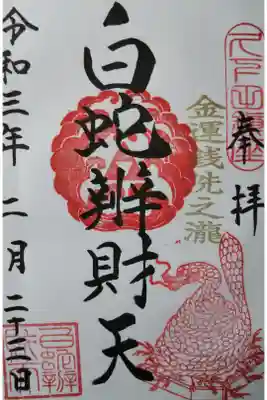 奉拝
金運銭洗之瀧
白蛇辨財天
令和三年 二月 二十三日